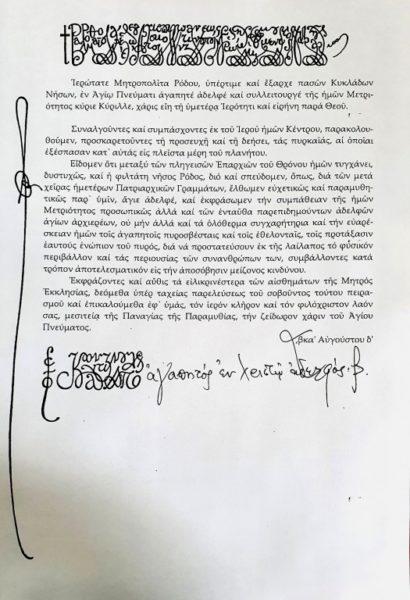 Ἱερώτατε Μητροπολῖτα Ρόδου, ὑπέρτιμε καί ἔξαρχε πασῶν Κυκλάδων
Νήσων, ἐν Ἁγίῳ Πνεύματι ἀγαπητέ ἀδελφέ καί συλλειτουργέ τῆς ἡμῶν Μετρι-
ότητος κύριε Κύριλλε, χάρις εἴη τῇ ὑμετέρᾳ Ἱερότητι καί εἰρήνη παρά Θεοῦ.
Συναλγοῦντες καί συμπάσχοντες ἐκ τοῦ Ἱεροῦ ἡμῶν Κέντρου, παρακολου-
θοῦμεν, προσκαρτεροῦντες τῇ προσευχῇ καί τῇ δεήσει, τάς πυρκαϊάς, αἱ ὁποῖαι
ἐξέσπασαν κατ᾿ αὐτάς εἰς πλεῖστα μέρη τοῦ πλανήτου.
Εἴδομεν ὅτι μεταξύ τῶν πληγεισῶν Ἐπαρχιῶν τοῦ Θρόνου ἡμῶν τυγχάνει,
δυστυχῶς, καί ἡ φιλτάτη νῆσος Ρόδος, διό καί σπεύδομεν, ὅπως, διά τῶν μετά
χεῖρας ἡμετέρων Πατριαρχικῶν Γραμμάτων, ἔλθωμεν εὐχετικῶς καί παραμυθη-
τικῶς παρ᾿ ὑμῖν, ἅγιε ἀδελφέ, καί ἐκφράσωμεν τήν συμπάθειαν τῆς ἡμῶν
Μετριότητος προσωπικῶς ἀλλά καί τῶν ἐνταῦθα παρεπιδημούντων ἀδελφῶν
ἁγίων ἀρχιερέων, οὐ μήν ἀλλά καί τά ὁλόθερμα συγχαρητήρια καί τήν εὐαρέ-
σκειαν ἡμῶν τοῖς ἀγαπητοῖς πυροσβέσταις καί τοῖς ἐθελονταῖς, τοῖς προτάξασιν
ἑαυτούς ἐνώπιον τοῦ πυρός, διά νά προστατεύσουν ἐκ τῆς λαίλαπος τό φυσικόν
περιβάλλον καί τάς περιουσίας τῶν συνανθρώπων των, συμβάλλοντες κατά
τρόπον ἀποτελεσματικόν εἰς τήν ἀποσόβησιν μείζονος κινδύνου.
Ἐκφράζοντες καί αὖθις τά εἰλικρινέστερα τῶν αἰσθημάτων τῆς Μητρός
Ἐκκλησίας, δεόμεθα ὑπέρ ταχείας παρελεύσεως τοῦ σοβοῦντος τούτου πειρα-
σμοῦ καί ἐπικαλούμεθα ἐφ᾿ ὑμᾶς, τόν ἱερόν κλῆρον καί τόν φιλόχριστον λαόν
σας, μεσιτείᾳ τῆς Παναγίας τῆς Παραμυθίας, τήν ζείδωρον χάριν τοῦ Ἁγίου
Πνεύματος.
͵βκα´ Αὐγούστου δ´
ἀγαπητός ἐν Χριστῷ ἀδελφός